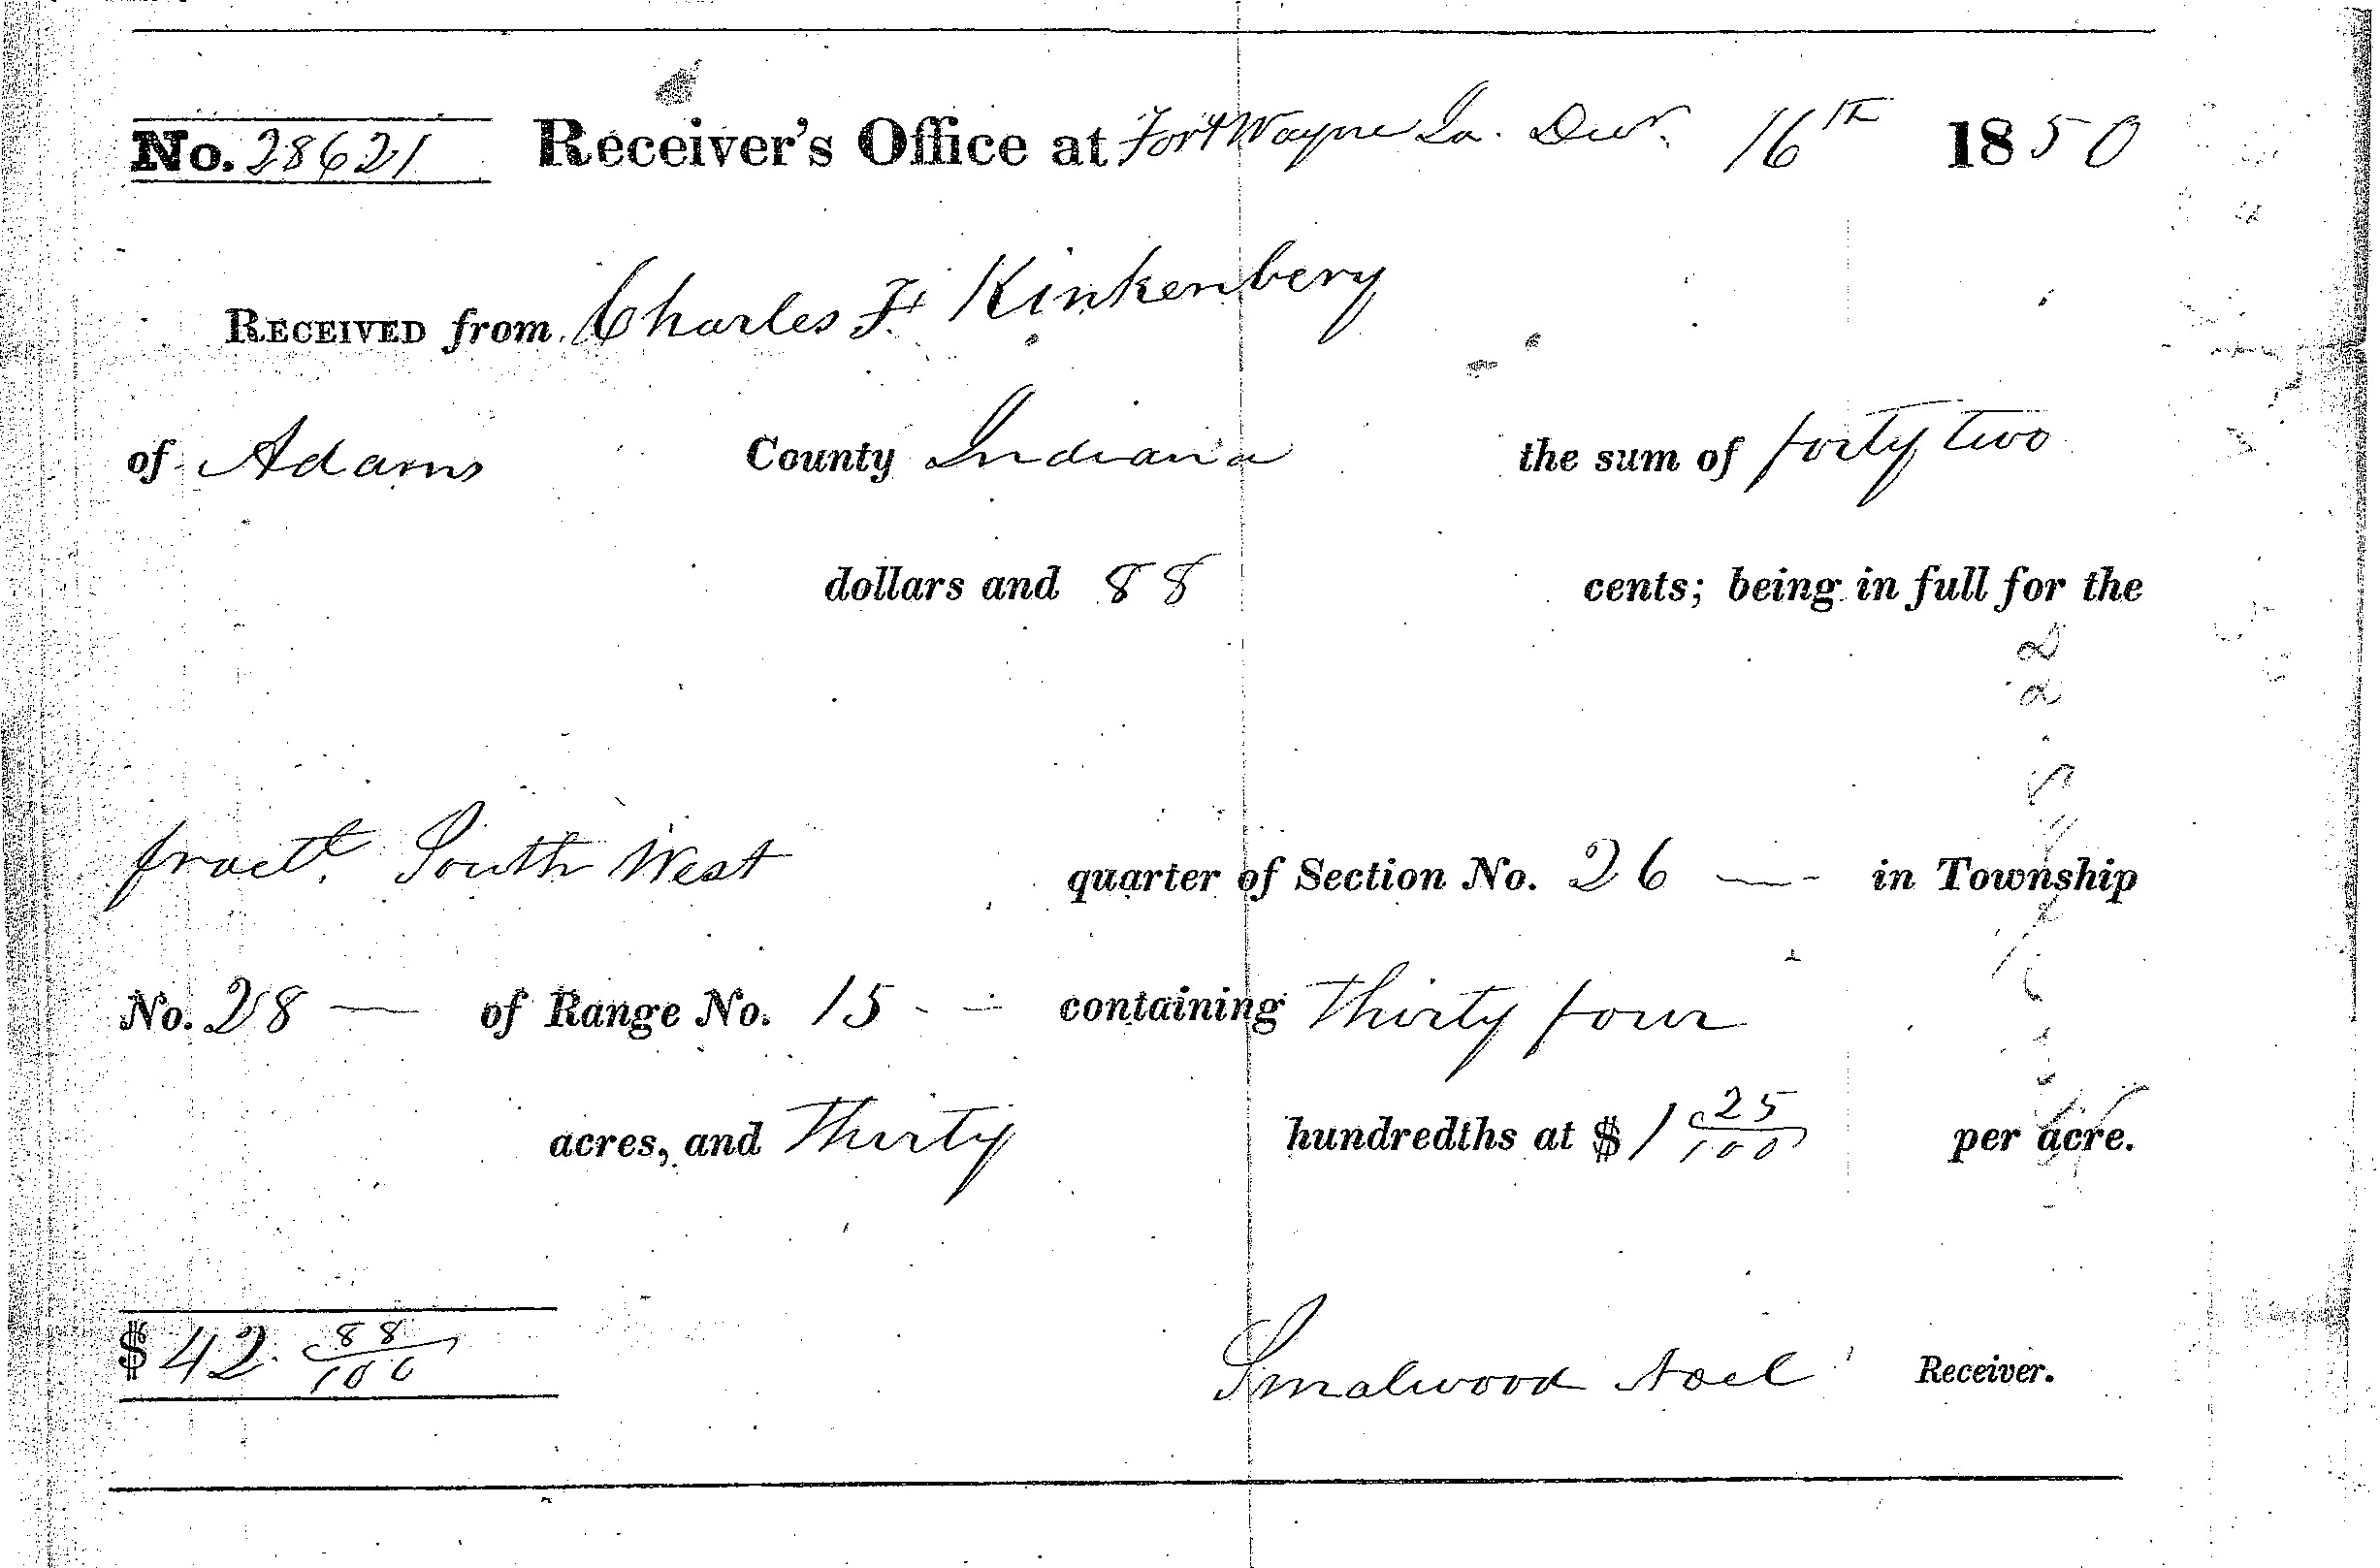 No. 28621 Receiver's Office at Fort Wayne Ia. Decr. 16th 1850
RECEIVED from Charles F. Kinkenbery
of Adams County Indiana the sum of forty two
dollars and 88 cents; being in full for the
fractl. South West quarter of Section No. 26 — in Township
No. 28 — of Range No. 15 - - containing Thirty four
acres, and Thirty hundredths at $ 1 25/100 per acre.
$ 42. 88/100 Smalwood Noel Receiver.